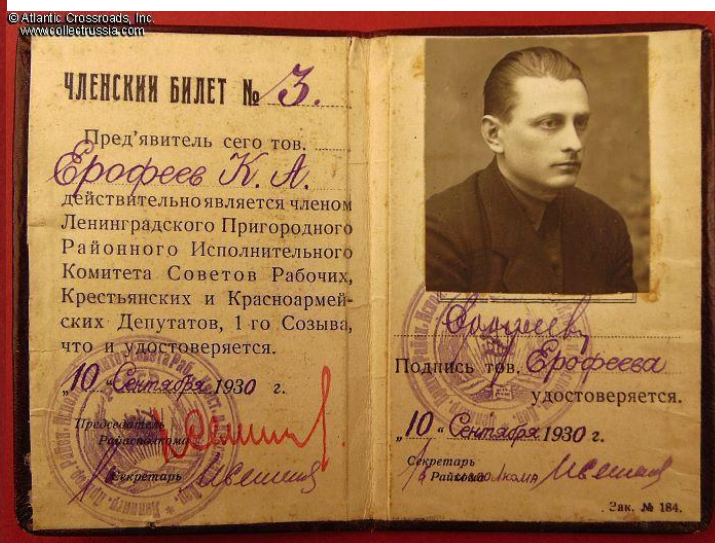 © Atlantic Crossroads, Inc.
www.collectrussia.com
ЧЛЕНСКИЙ БИЛЕТ № 3.
Пред’явитель сего тов.
Ерофеев К. А.
действительно является членом
Ленинградского Пригородного
Районного Исполнительного
Комитета Советов Рабочих,
Крестьянских и Красноармей-
ских Депутатов, 1 го Созыва,
что и удостоверяется.
„10 “ Сентября 1930 г.
Председатель
Райисполкома
Секретарь
Подпись тов. Ерофеева
удостоверяется.
„10 “ Сентября 1930 г.
Секретарь
Зак. № 184.